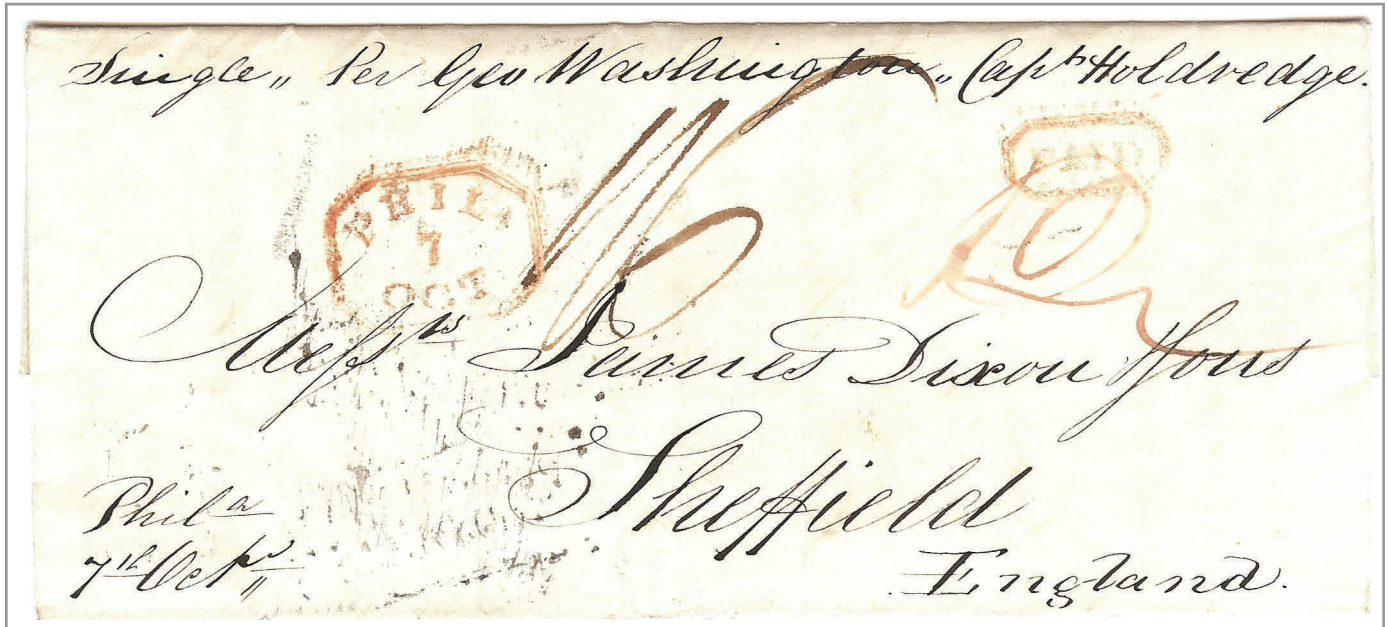 Single „ Per Geo Washington „ Capt Holdredge.
PAID
PHIL.
7
OCT
Messrs James Dixon & Sons
Sheffield
England.
Phila
7th Octr „